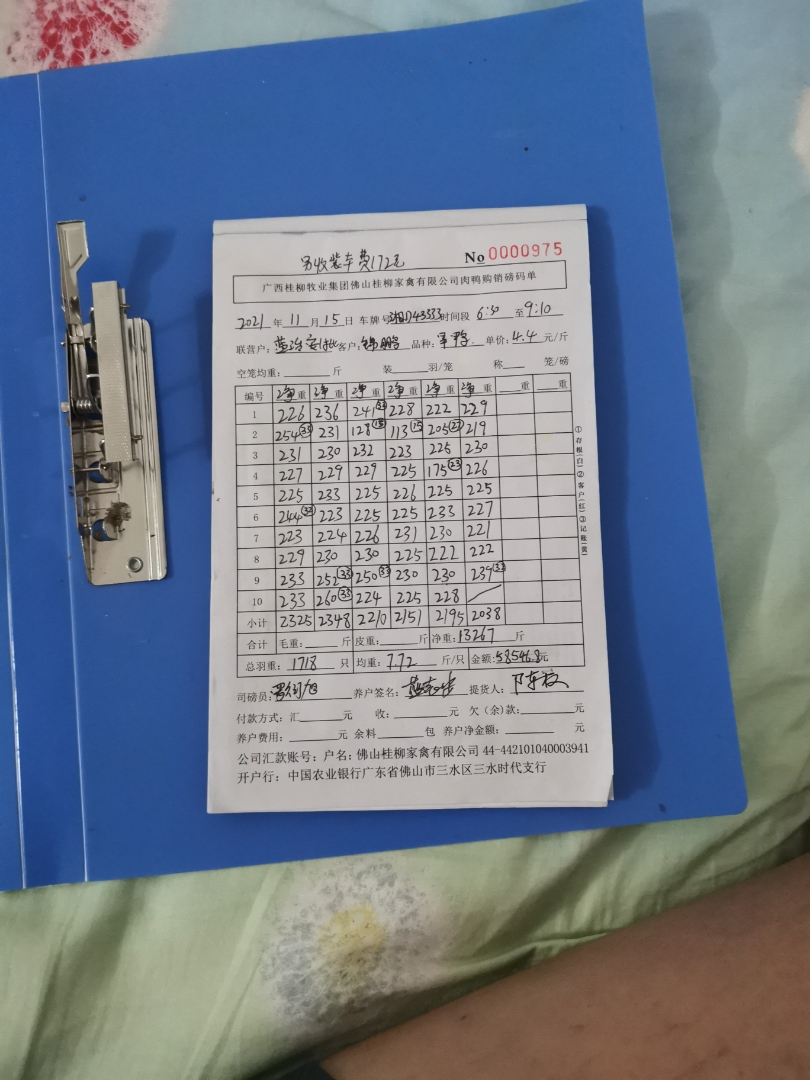 另收装车费172元
No 0000975
广西桂柳牧业集团佛山桂柳家禽有限公司肉鸭购销磅码单
2021年11月15日 车牌号 湘D43333 时间段 6:30 至 9:10
联营户: 客户: 锦鹏 品种: 单价: 4.4 元/斤
空笼均重: 斤 装 羽/笼 称 笼/磅
编号 净重 净重 净重 净重 净重 净重 重 重
1 226 236 241(32) 228 222 229
2 254(33) 231 128(18) 113(15) 205(27) 219
3 231 230 232 223 225 230
4 227 229 229 225 175(23) 226
5 225 233 225 226 225 225
6 244(32) 223 225 225 233 227
7 223 224 226 231 230 221
8 229 230 230 225 222 222
9 233 252(33) 250(33) 230 230 239(33)
10 233 260(35) 224 225 228
小计 2325 2348 2210 2151 2195 2038
合计 毛重: 斤 皮重: 斤 净重: 13267 斤
总羽重: 1718 只 均重: 7.72 斤/只 金额: 58546.8元
司磅员: 养户签名: 提货人:
付款方式: 汇 元 收: 元 欠(余)款: 元
养户费用: 元 余料 包 养户净金额: 元
公司汇款账号: 户名: 佛山桂柳家禽有限公司 44-442101040003941
开户行: 中国农业银行广东省佛山市三水区三水时代支行
①存根(白)②客户(红)③记账(黄)